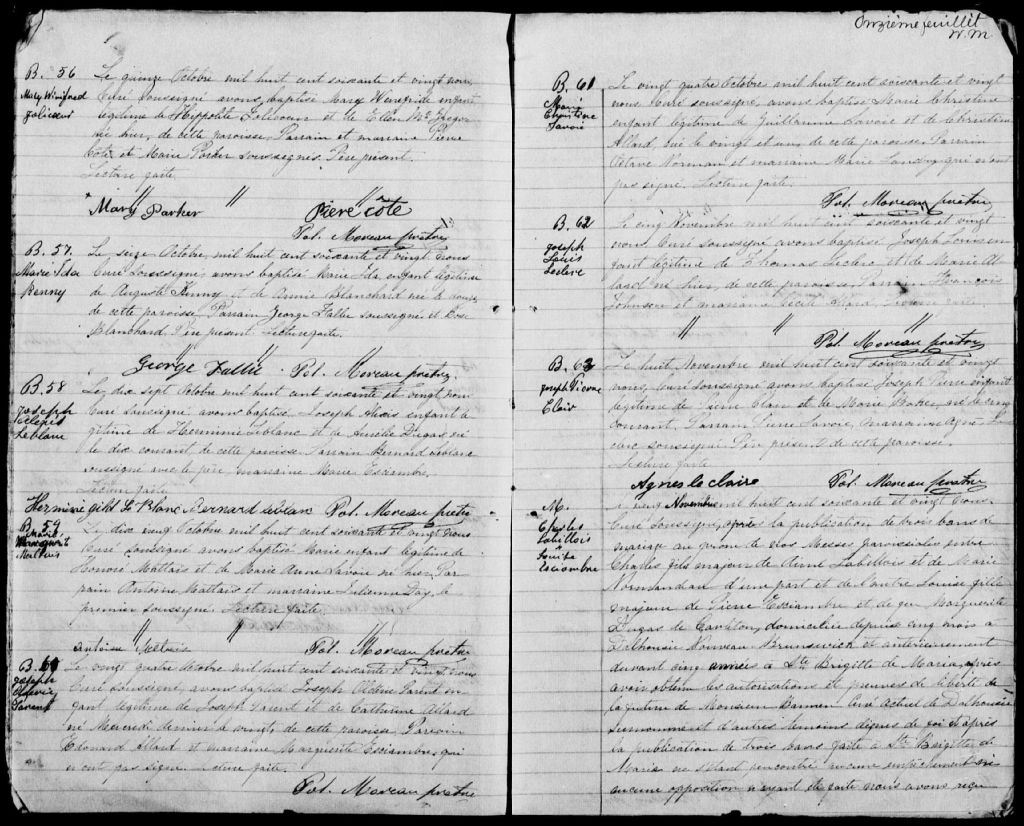 Onzième feuillet
N. M
B. 56
Mary Winifred
Jolicoeur
Le quinze Octobre mil huit cent soixante et vingt nous
Curé Soussigné avons baptisé Mary Winefride enfant
légitime de Hippolite Jolicoeur et de Ellen
née hier, de cette paroisse, Parrain et marraine Pierre
Côté et Marie Parker Soussignés. Père présent.
Lecture faite.
Mary Parker Piere côté
Pol. Moreau prêtre
B. 57.
Marie Ida
Kenny
Le seize Octobre, mil huit cent soixante et vingt nous
Curé Soussigné, avons baptisé Marie Ida enfant légitime
de Auguste Kenny et de Annie Blanchard née le douze
de cette paroisse, Parrain George Fallu soussigné et Rose
Blanchard. Père présent. Lecture faite.
George Fallu Pol. Moreau prêtre.
B. 58
Joseph
Alexis
Leblanc
Le dix sept Octobre mil huit cent soixante et vingt nous
Curé Soussigné avons baptisé Joseph Alexis enfant lé
gitime de Herminie Leblanc et de Aurélie Dugas né
le dix courant de cette paroisse Parrain Bernard Leblanc
soussigné avec le père, marraine Marie Esciambre.
Lecture faite
Herminégild Le Blanc Bernard leblan Pol. Moreau prêtre
B. 59
Marie
Mathuis
Le dix neuf Octobre mil huit cent soixante et vingt nous
Curé Soussigné avons baptisé Marie enfant légitime de
Honoré Mallais et de Marie Anne Savoie née hier, Par
rain Antoine Mallais et marraine Julienne Day, le
premier soussigné. Lecture faite.
Antoine Pol. Moreau prêtre
B. 60
Joseph
Parent
Le vingt quatre Octobre mil huit cent soixante et vingt, nous
Curé Soussigné, avons baptisé Joseph Parent en
fant légitime de Joseph Parent et de Catherine Allard
né Mercredi dernier le vingt de cette paroisse Parrain
Edouard Allard et marraine Marguerite Esciambre, qui
n'ont pas signé. Lecture faite.
Pol. Moreau prêtre
B. 61
Marie
Christine
Savoie
Le vingt quatre Octobre mil huit cent soixante et vingt
nous Curé soussigné, avons baptisé Marie Christine
enfant légitime de Guillaume Savoie et de Christine
Allard, née le vingt et un de cette paroisse Parrain
Octave Norman et marraine Marie Landry qui n'ont
pas signé. Lecture faite.
Pol. Moreau prêtre
B. 62
Joseph
Louis
Leclerc
Le cinq Novembre mil huit cent soixante et vingt
nous Curé Soussigné avons baptisé Joseph Louis en
fant légitime de Thomas Leclerc et de Marie
né hier, de cette paroisse, Parrain François
Johnson et marraine Allard. Lecture faite
Pol. Moreau prêtre
B. 63
Joseph Pierre
Clair
Le huit Novembre mil huit cent soixante et vingt
nous, Curé Soussigné avons baptisé Joseph Pierre enfant
légitime de Pierre Clair et de Marie Baker, né le cinq
courant, Parrain Pierre Savoie, marraine Agnès Le
clerc soussignée Père présent de cette paroisse.
Lecture faite
Agnes le claire Pol. Moreau prêtre
M.
Charles
Labillois
Louise
Esciambre
Le neuf Novembre mil huit cent soixante et vingt nous
Curé Soussigné, après la publication de trois bans de
mariage au prône de nos Messes paroissiales entre
Charles fils majeur de Labillois et de Marie
Normandan d'une part et de l'autre Louise fille
majeure de Pierre Esciambre et de feu Marguerite
Dugas de Carleton, domiciliée depuis cinq mois à
Dalhousie Nouveau Brunswick et antérieurement
durant cinq années à Ste Brigitte de Maria, après
avoir obtenu les autorisations et preuves de liberté de
la future de Monsieur Curé actuel de Dalhousie
susnommé et d'autres témoins dignes de foi et après
la publication de trois bans faite à Ste Brigitte de
Maria ne s'étant rencontré aucun empêchement ni
aucune opposition n'ayant été faite nous avons reçu